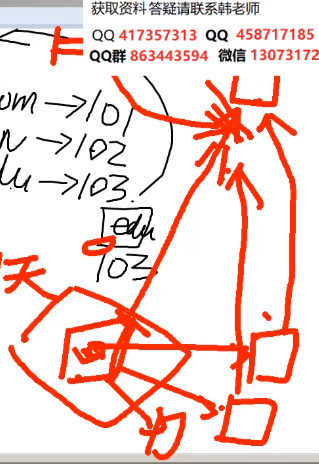 获取资料 答疑请联系韩老师
QQ 417357313 QQ 458717185
QQ群 863443594 微信 13073172
om →101
→102
du →103
edu
103
天